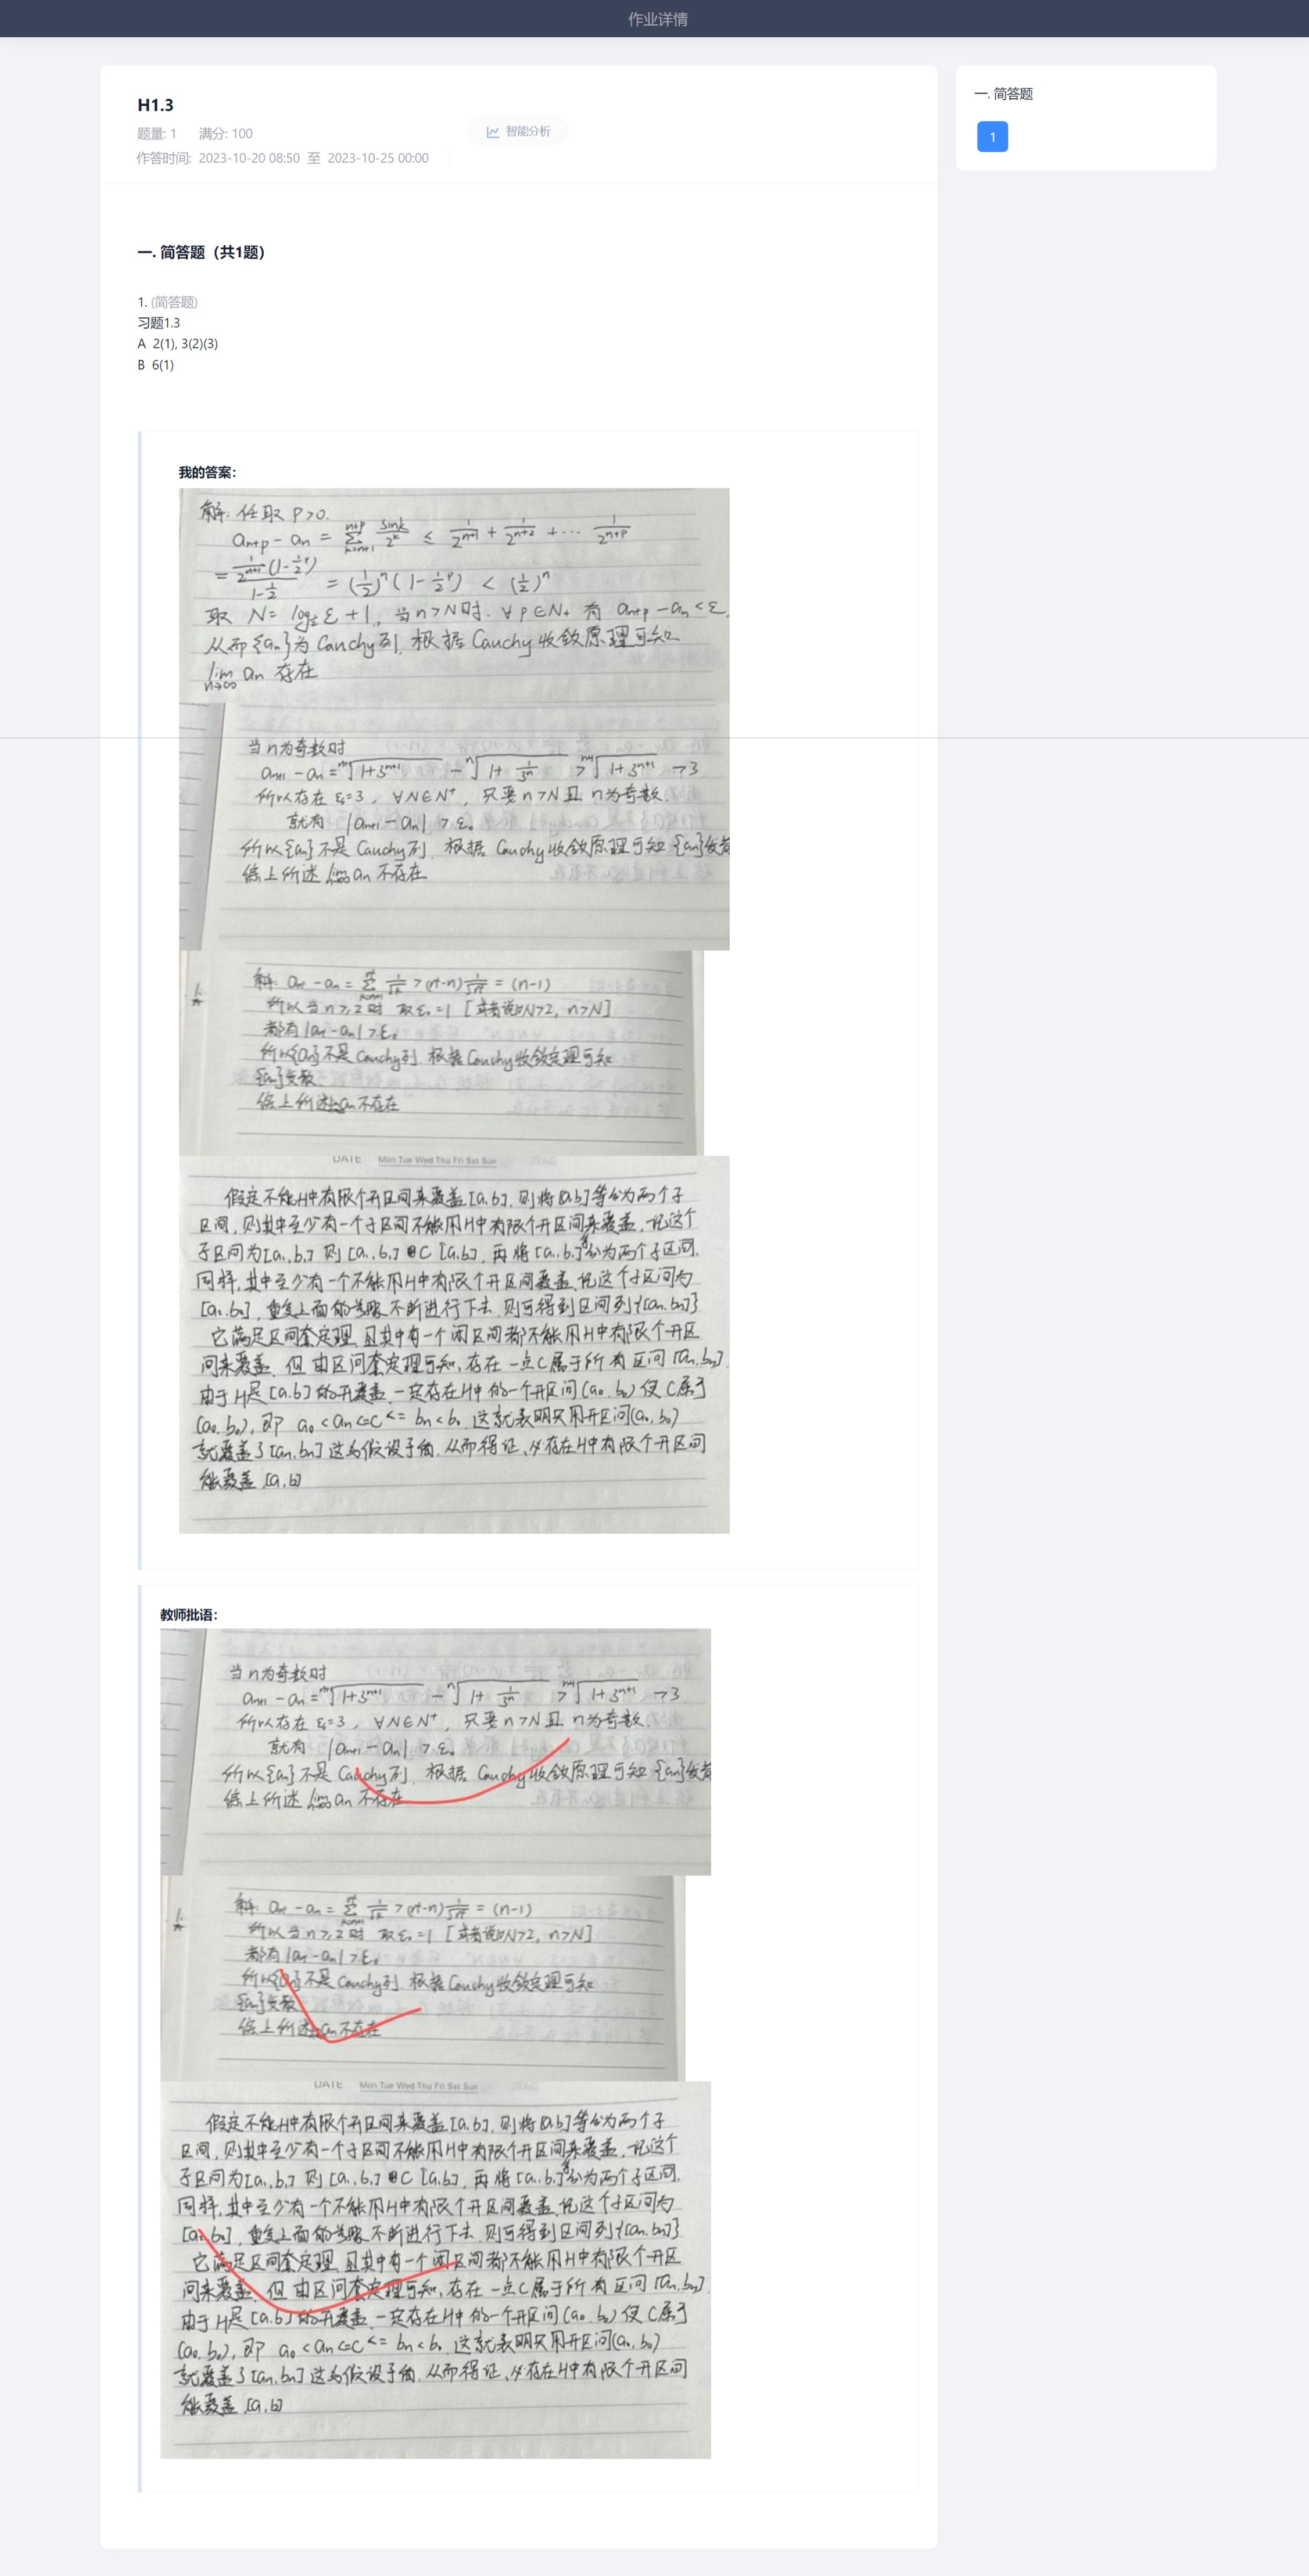 作业详情
H1.3
题量: 1 满分: 100
智能分析
作答时间: 2023-10-20 08:50 至 2023-10-25 00:00
一. 简答题
1
一. 简答题（共1题）
1. (简答题)
习题1.3
A 2(1), 3(2)(3)
B 6(1)
我的答案：
解: 任取 P>0.
a_{n+p} - a_n = \sum_{k=n+1}^{n+p} \frac{sin k}{2^k} ≤ \frac{1}{2^{n+1}} + \frac{1}{2^{n+2}} + ⋯ \frac{1}{2^{n+p}}
= \frac{\frac{1}{2^{n+1}}(1-\frac{1}{2}^p)}{1-\frac{1}{2}} = (\frac{1}{2})^n (1-\frac{1}{2}^p) < (\frac{1}{2})^n
取 N = log_{\frac{1}{2}} ε + 1, 当 n>N 时. ∀ p∈N+ 有 a_{n+p} - a_n < ε.
从而{a_n}为 Cauchy 列, 根据 Cauchy 收敛原理可知
\lim_{n→∞} a_n 存在
当 n 为奇数时
a_{n+1} - a_n = \sqrt[n+1]{1+3^{n+1}} - \sqrt[n]{1+\frac{1}{3^n}} > \sqrt[n+1]{1+3^{n+1}} → 3
所以存在 ε₀=3, ∀N∈N⁺, 只要 n>N 且 n 为奇数.
就有 |a_{n+1} - a_n| > ε₀
所以{a_n}不是 Cauchy 列. 根据 Cauchy 收敛原理可知 {a_n}发散
综上所述 \lim_{n→∞} a_n 不存在
所以当 n≥2 时 取 ε₀=1 [或者说 N>2, n>N]
所以{a_n}不是 Cauchy 列. 根据 Cauchy 收敛定理可知
{a_n}发散.
综上所述 a_n 不存在
DATE Mon Tue Wed Thu Fri Sat Sun
假定不能H中有限个开区间来覆盖[a,b], 则将[a,b]等分为两个子
区间, 则其中至少有一个子区间不能用H中有限个开区间来覆盖, 记这个
子区间为[a₁,b₁] 则[a₁,b₁] ⊂ [a,b], 再将[a₁,b₁]等分为两个子区间.
同样, 其中至少有一个不能用H中有限个开区间覆盖, 记这个子区间为
[a₂,b₂], 重复上面的步骤不断进行下去. 则可得到区间列{[a_n,b_n]}
它满足区间套定理. 且其中有一个闭区间都不能用H中有限个开区
间来覆盖. 但由区间套定理可知, 存在一点C属于所有区间[a_n,b_n].
由于H是[a,b]的开覆盖. 一定存在H中的一个开区间(a₀,b₀)使C属于
(a₀,b₀), 即 a₀<a_n<=c<=b_n<b₀ 这就表明只用开区间(a₀,b₀)
就覆盖了[a_n,b_n] 这与假设矛盾. 从而得证, 必存在H中有限个开区间
能覆盖[a,b]
教师批语：
当 n 为奇数时
a_{n+1} - a_n = \sqrt[n+1]{1+3^{n+1}} - \sqrt[n]{1+\frac{1}{3^n}} > \sqrt[n+1]{1+3^{n+1}} → 3
所以存在 ε₀=3, ∀N∈N⁺, 只要 n>N 且 n 为奇数.
就有 |a_{n+1} - a_n| > ε₀
所以{a_n}不是 Cauchy 列. 根据 Cauchy 收敛原理可知 {a_n}发散
综上所述 \lim_{n→∞} a_n 不存在
所以当 n≥2 时 取 ε₀=1 [或者说 N>2, n>N]
所以{a_n}不是 Cauchy 列. 根据 Cauchy 收敛定理可知
{a_n}发散
综上所述 a_n 不存在
DATE Mon Tue Wed Thu Fri Sat Sun
假定不能H中有限个开区间来覆盖[a,b], 则将[a,b]等分为两个子
区间, 则其中至少有一个子区间不能用H中有限个开区间来覆盖, 记这个
子区间为[a₁,b₁] 则[a₁,b₁] ⊂ [a,b], 再将[a₁,b₁]等分为两个子区间.
同样, 其中至少有一个不能用H中有限个开区间覆盖, 记这个子区间为
[a₂,b₂], 重复上面的步骤不断进行下去. 则可得到区间列{[a_n,b_n]}
它满足区间套定理. 且其中有一个闭区间都不能用H中有限个开区
间来覆盖. 但由区间套定理可知, 存在一点C属于所有区间[a_n,b_n].
由于H是[a,b]的开覆盖. 一定存在H中的一个开区间(a₀,b₀)使C属于
(a₀,b₀), 即 a₀<a_n<=c<=b_n<b₀ 这就表明只用开区间(a₀,b₀)
就覆盖了[a_n,b_n] 这与假设矛盾. 从而得证, 必存在H中有限个开区间
能覆盖[a,b]